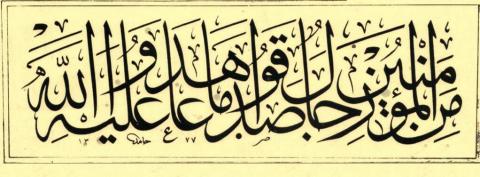 من المؤمنين رجال صدقوا ما عاهدوا الله عليه
حامد